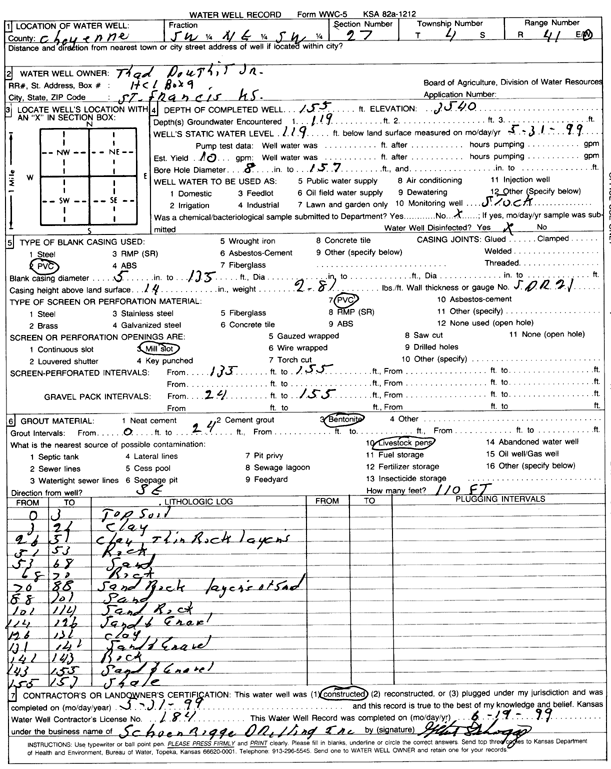 WATER WELL RECORD Form WWC-5 KSA 82a-1212
1 LOCATION OF WATER WELL: Fraction Section Number Township Number Range Number
County: Cheyenne SW ¼ NE ¼ SW ¼ 27 T 4 S R 41 E/W
Distance and direction from nearest town or city street address of well if located within city?
2 WATER WELL OWNER: Thad Douthit Jr.
RR#, St. Address, Box # : HC1 Box 9 Board of Agriculture, Division of Water Resources
City, State, ZIP Code : ST. Francis KS. Application Number:
3 LOCATE WELL'S LOCATION WITH AN "X" IN SECTION BOX:
N
NW NE
W E
SW SE
S
1 Mile
4 DEPTH OF COMPLETED WELL 155 ft. ELEVATION: 3540
Depth(s) Groundwater Encountered 1. 119 ft. 2. ft. 3. ft.
WELL'S STATIC WATER LEVEL 119 ft. below land surface measured on mo/day/yr 5-31-99
Pump test data: Well water was ft. after hours pumping gpm
Est. Yield 10 gpm: Well water was ft. after hours pumping gpm
Bore Hole Diameter 8 in. to 157 ft., and in. to ft.
WELL WATER TO BE USED AS: 5 Public water supply 8 Air conditioning 11 Injection well
1 Domestic 3 Feedlot 6 Oil field water supply 9 Dewatering 12 Other (Specify below)
2 Irrigation 4 Industrial 7 Lawn and garden only 10 Monitoring well Stock
Was a chemical/bacteriological sample submitted to Department? Yes No X ; If yes, mo/day/yr sample was submitted
Water Well Disinfected? Yes X No
5 TYPE OF BLANK CASING USED: 5 Wrought iron 8 Concrete tile CASING JOINTS: Glued Clamped
1 Steel 3 RMP (SR) 6 Asbestos-Cement 9 Other (specify below) Welded
2 PVC 4 ABS 7 Fiberglass Threaded
Blank casing diameter 5 in. to 135 ft., Dia in. to ft., Dia in. to ft.
Casing height above land surface 14 in., weight 2.81 lbs./ft. Wall thickness or gauge No. SDR 21
TYPE OF SCREEN OR PERFORATION MATERIAL: 7 PVC 10 Asbestos-cement
1 Steel 3 Stainless steel 5 Fiberglass 8 RMP (SR) 11 Other (specify)
2 Brass 4 Galvanized steel 6 Concrete tile 9 ABS 12 None used (open hole)
SCREEN OR PERFORATION OPENINGS ARE: 5 Gauzed wrapped 8 Saw cut 11 None (open hole)
1 Continuous slot 3 Mill slot 6 Wire wrapped 9 Drilled holes
2 Louvered shutter 4 Key punched 7 Torch cut 10 Other (specify)
SCREEN-PERFORATED INTERVALS: From 135 ft. to 155 ft., From ft. to ft.
From ft. to ft., From ft. to ft.
GRAVEL PACK INTERVALS: From 24 ft. to 155 ft., From ft. to ft.
From ft. to ft., From ft. to ft.
6 GROUT MATERIAL: 1 Neat cement 2 Cement grout 3 Bentonite 4 Other
Grout Intervals: From 0 ft. to 24 ft., From ft. to ft., From ft. to ft.
What is the nearest source of possible contamination: 10 Livestock pens 14 Abandoned water well
1 Septic tank 4 Lateral lines 7 Pit privy 11 Fuel storage 15 Oil well/Gas well
2 Sewer lines 5 Cess pool 8 Sewage lagoon 12 Fertilizer storage 16 Other (specify below)
3 Watertight sewer lines 6 Seepage pit 9 Feedyard 13 Insecticide storage
Direction from well? SE How many feet? 110 FT
FROM TO LITHOLOGIC LOG FROM TO PLUGGING INTERVALS
0 3 Top Soil
3 26 Clay
26 51 Clay Thin Rock layers
51 53 Rock
53 68 Sand
68 70 Rock
70 88 Sand Rock layers of Sand
88 101 Sand
101 114 Sand Rock
114 126 Sand & Gravel
126 131 Clay
131 141 Sand & Gravel
141 143 Rock
143 155 Sand & Gravel
155 157 Shale
7 CONTRACTOR'S OR LANDOWNER'S CERTIFICATION: This water well was (1) constructed (2) reconstructed, or (3) plugged under my jurisdiction and was
completed on (mo/day/year) 5-31-99 and this record is true to the best of my knowledge and belief. Kansas
Water Well Contractor's License No. 184 This Water Well Record was completed on (mo/day/yr) 6-19-99
under the business name of Drilling Inc by (signature)
INSTRUCTIONS: Use typewriter or ball point pen. PLEASE PRESS FIRMLY and PRINT clearly. Please fill in blanks, underline or circle the correct answers. Send top three copies to Kansas Department
of Health and Environment, Bureau of Water, Topeka, Kansas 66620-0001. Telephone: 913-296-5545. Send one to WATER WELL OWNER and retain one for your records.